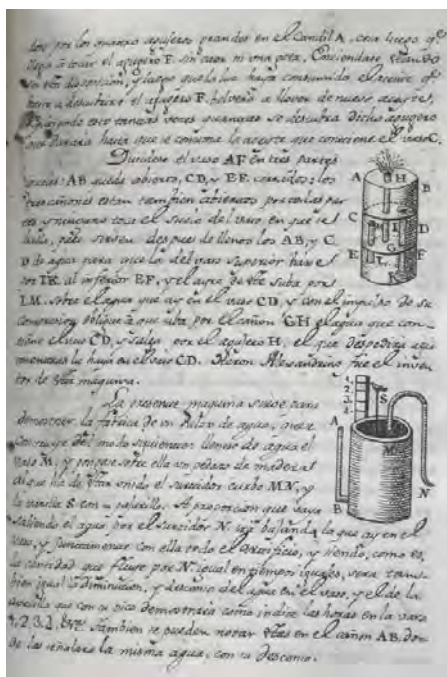 los por los quatro agujeros grandes en el Candil A, cera luego qe
llega à tocar el agugero F. sin caer ni una gota. Enciendase estando
en esta disposicion, y luego que la luz haya consumido el aceite qe
basta a descubrir el agugero F. bolverà a llover de nuevo aceyte,
repitiendo esto tantas veces quantas se descubra dicho agugero
que durara hasta que se consuma la aceite que contiene el vaso.
Dividese el vaso AF en tres partes
iguales: AB queda abierto, CD, y EF. cerrados; los
tres cañones estan tambien abiertos por ambas par
tes y ninguno toca el suelo del vaso en que se
halla, pues sirven despues de llenos los AB, y C
D de agua para que la del vaso superior baxe
por IK al inferior EF, y el ayre de este suba por
LM. sobre el agua que ay en el vaso CD, y con el impulso de su
compresion obligue à que suba por el cañon GH el agua que con-
tiene el vaso CD, y salga por el agujero H, el que despedirà agua
mientras la haya en el vaso CD. Heron Alexandrino fue el inven-
tor de esta maquina.
La presente maquina sirve para
demostrar la fabrica de un Relox de agua, que se
construye del modo siguiente: llenese de agua el
vaso M, y pongase sobre ella un pedazo de madera al
que ha de estar unido el surtidor curbo MN, y
la varilla S con su paxarillo. A proporcion que vaya
saliendo el agua por el surtidor N. irà bajando la que ay en el
vaso, y juntamente con ella todo el artificio, y siendo, como es,
la cantidad que fluye por N igual en tiempos iguales, serà tam-
bien igual la diminucion, y descenso del agua en el vaso, y el de la
avecilla que con su pico demostrarà como indice las horas en la vara
1, 2, 3, 4, &c. Tambien se pueden notar estas en el cañon AB, don-
de las señalarà la misma agua, con su descenso.
A H B
C I D
G
E L F
K
1. 2. 3. 4.
S
A
M
B N